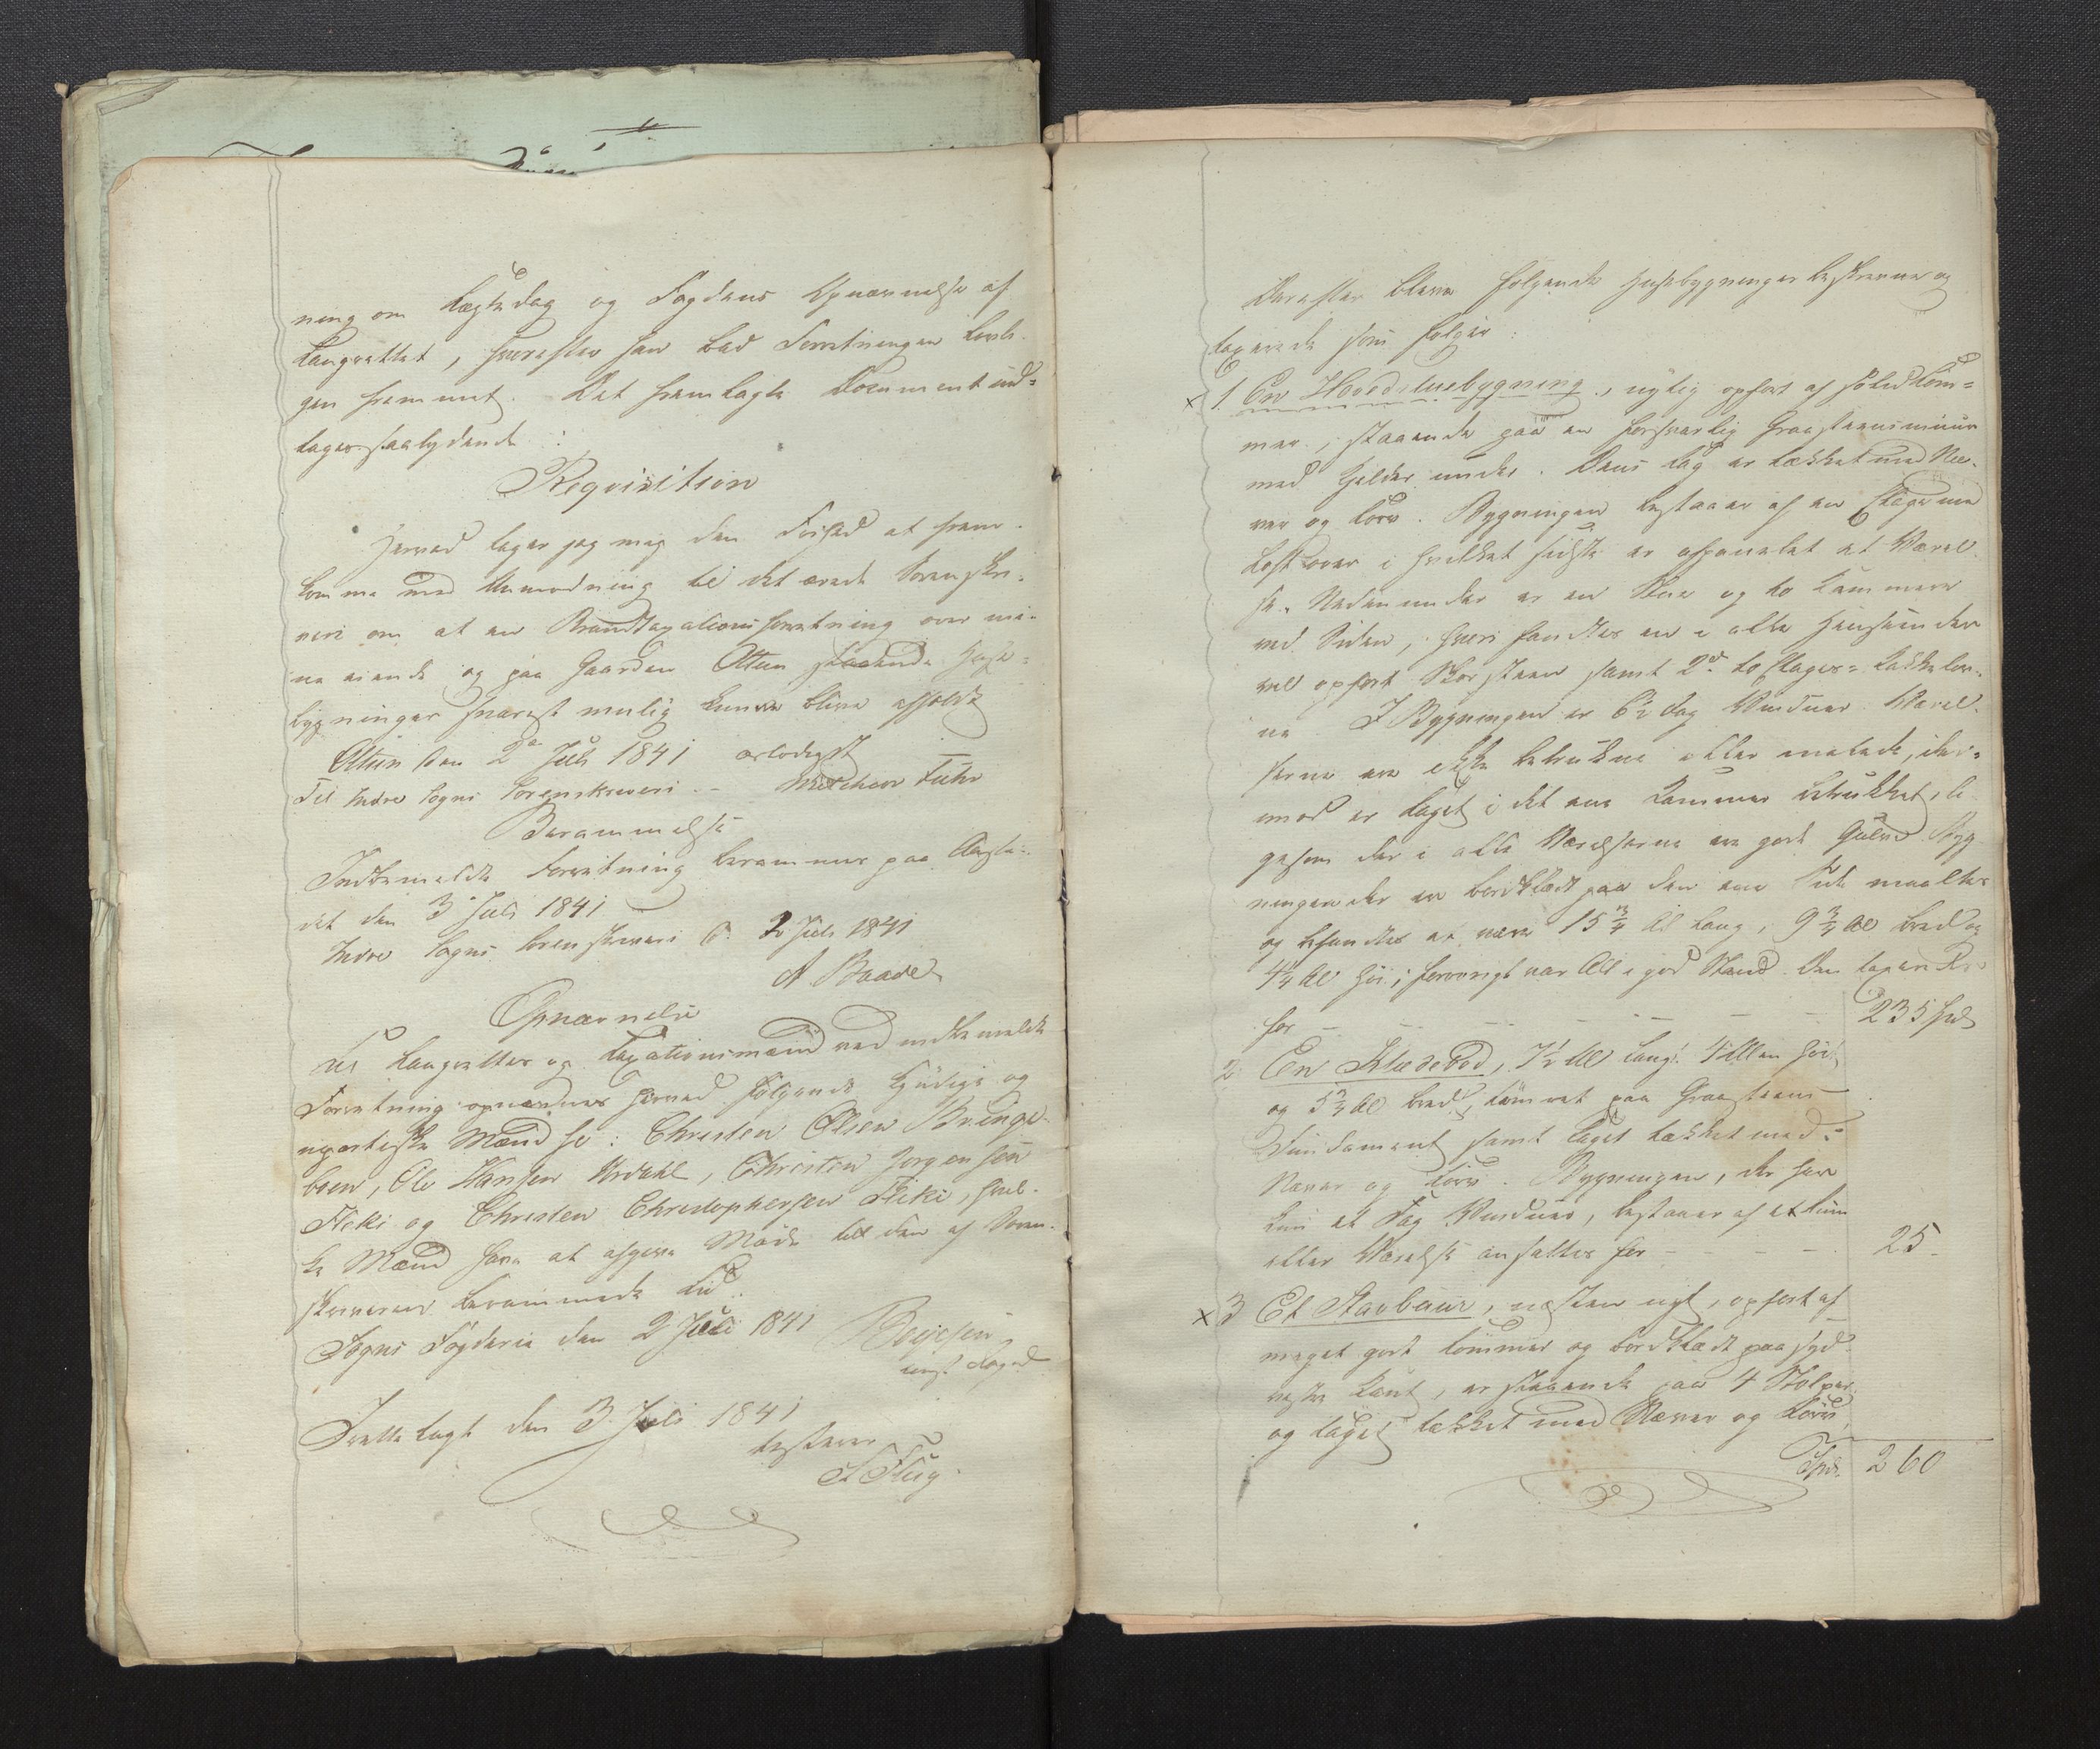 ning om Tægtedag og Fogdens Opnævnelse af
Laugrettet, hvorefter han bad Forretningen lovli-
gen fremmet. Det fremlagte Document ind-
tages saalydende:
Reqvisition
Herved tager jeg mig den Frihed at frem-
komme med Anmodning til det ærede Sorenskri-
veri om at en Brandtaxationsforretning over mi-
ne eiende og paa Gaarden Attun staaende Huse-
bygninger snarest mulig kunne blive afholdt
Attun den 2de Juli 1841 ærbødigst
Til Indre Sogns Sorenskriveri. – Fuhr
Berammelse
Indbemeldte Forretning berammes paa Aaste-
det den 3 Juli 1841
Indre Sogns Sorenskriveri d. 2 Juli 1841
A Baade
Opnævnelse
Til Laugrettes og Taxationsmænd ved indbemeldte
Forretning opnævnes herved følgende kyndige og
upartiske Mænd so: Christen Olsen Bringe-
boen, Ole Hansen Ardahl, Christen Jørgensen
Fleki og Christen Christophersen Fleki, hvil-
ke Mænd have at afgive Møde til den af Soren-
skriveren berammede Tid.
Sogns Fogderie den 2 Juli 1841
const Foged
Fremlagt den 3 Juli 1841
testerer
Derefter bleve følgende Husebygninger beskrevne og
taxerede som følger:
x 1. En Hovedstuebygning, nylig opført af solid Tøm-
mer, staaende paa en forsvarlig Graasteensmuur
med Kjelder under. Dens Tag er tækket med Næ-
ver og Torv. Bygningen bestaaer af en Etage med
Loft over i hvilket sidste er afpanelet et Værel-
se. Nedenunder er en Stue og to Kammere
ved Siden, hvori fandtes en i alle Henseender
vel opført Skorsteen samt 2de to Etages Kakkelov-
ne I Bygningen er 6½ Fag Vinduer. Værel-
serne ere ikke betrukne eller malede, der-
imod er Taget i det ene Kammer betrukket, li-
gesom der i alle Værelserne ere gode Gulve Byg-
ningen der er bordklædt paa den ene Side maaltes
og befandtes at være 15¾ Al lang, 9¾ Al bred og
4¼ Al høi; forøvrigt var Alt i god Stand. Den taxeredes
for – – – – – – 235 Spd
2. En Klædebod, 7½ Al lang, 4 Allen høi
og 5¾ Al bred, tømret paa Graasteens
Fundament samt Taget tækket med
Næver og Torv. Bygningen, der har
kun et Fag Vinduer, bestaaer af et Rum
eller Værelse ansattes for – – – – 25 –
x 3 Et Stavbuur, næsten nyt, opført af
meget godt Tømmer og bordklædt paa syd-
vestre Kant, er staaende paa 4 Stolper
og Taget tækket med Næver og Torv,
Spd. 260